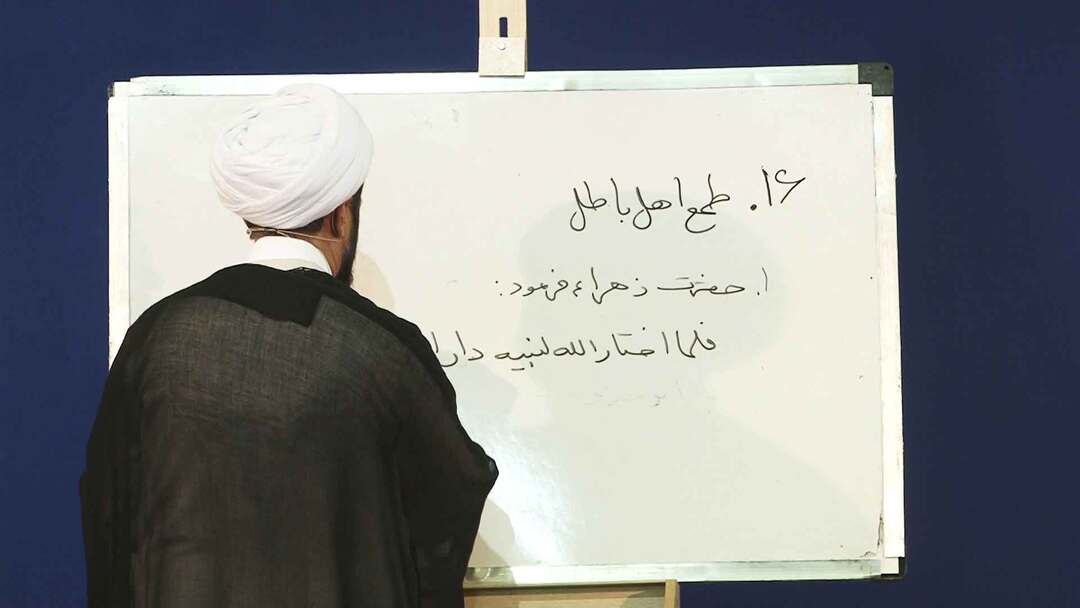 ۱۶. طمع اهل باطل
۱. حضرت زهراء فرمود:
فلما اختار الله لنبیه دار